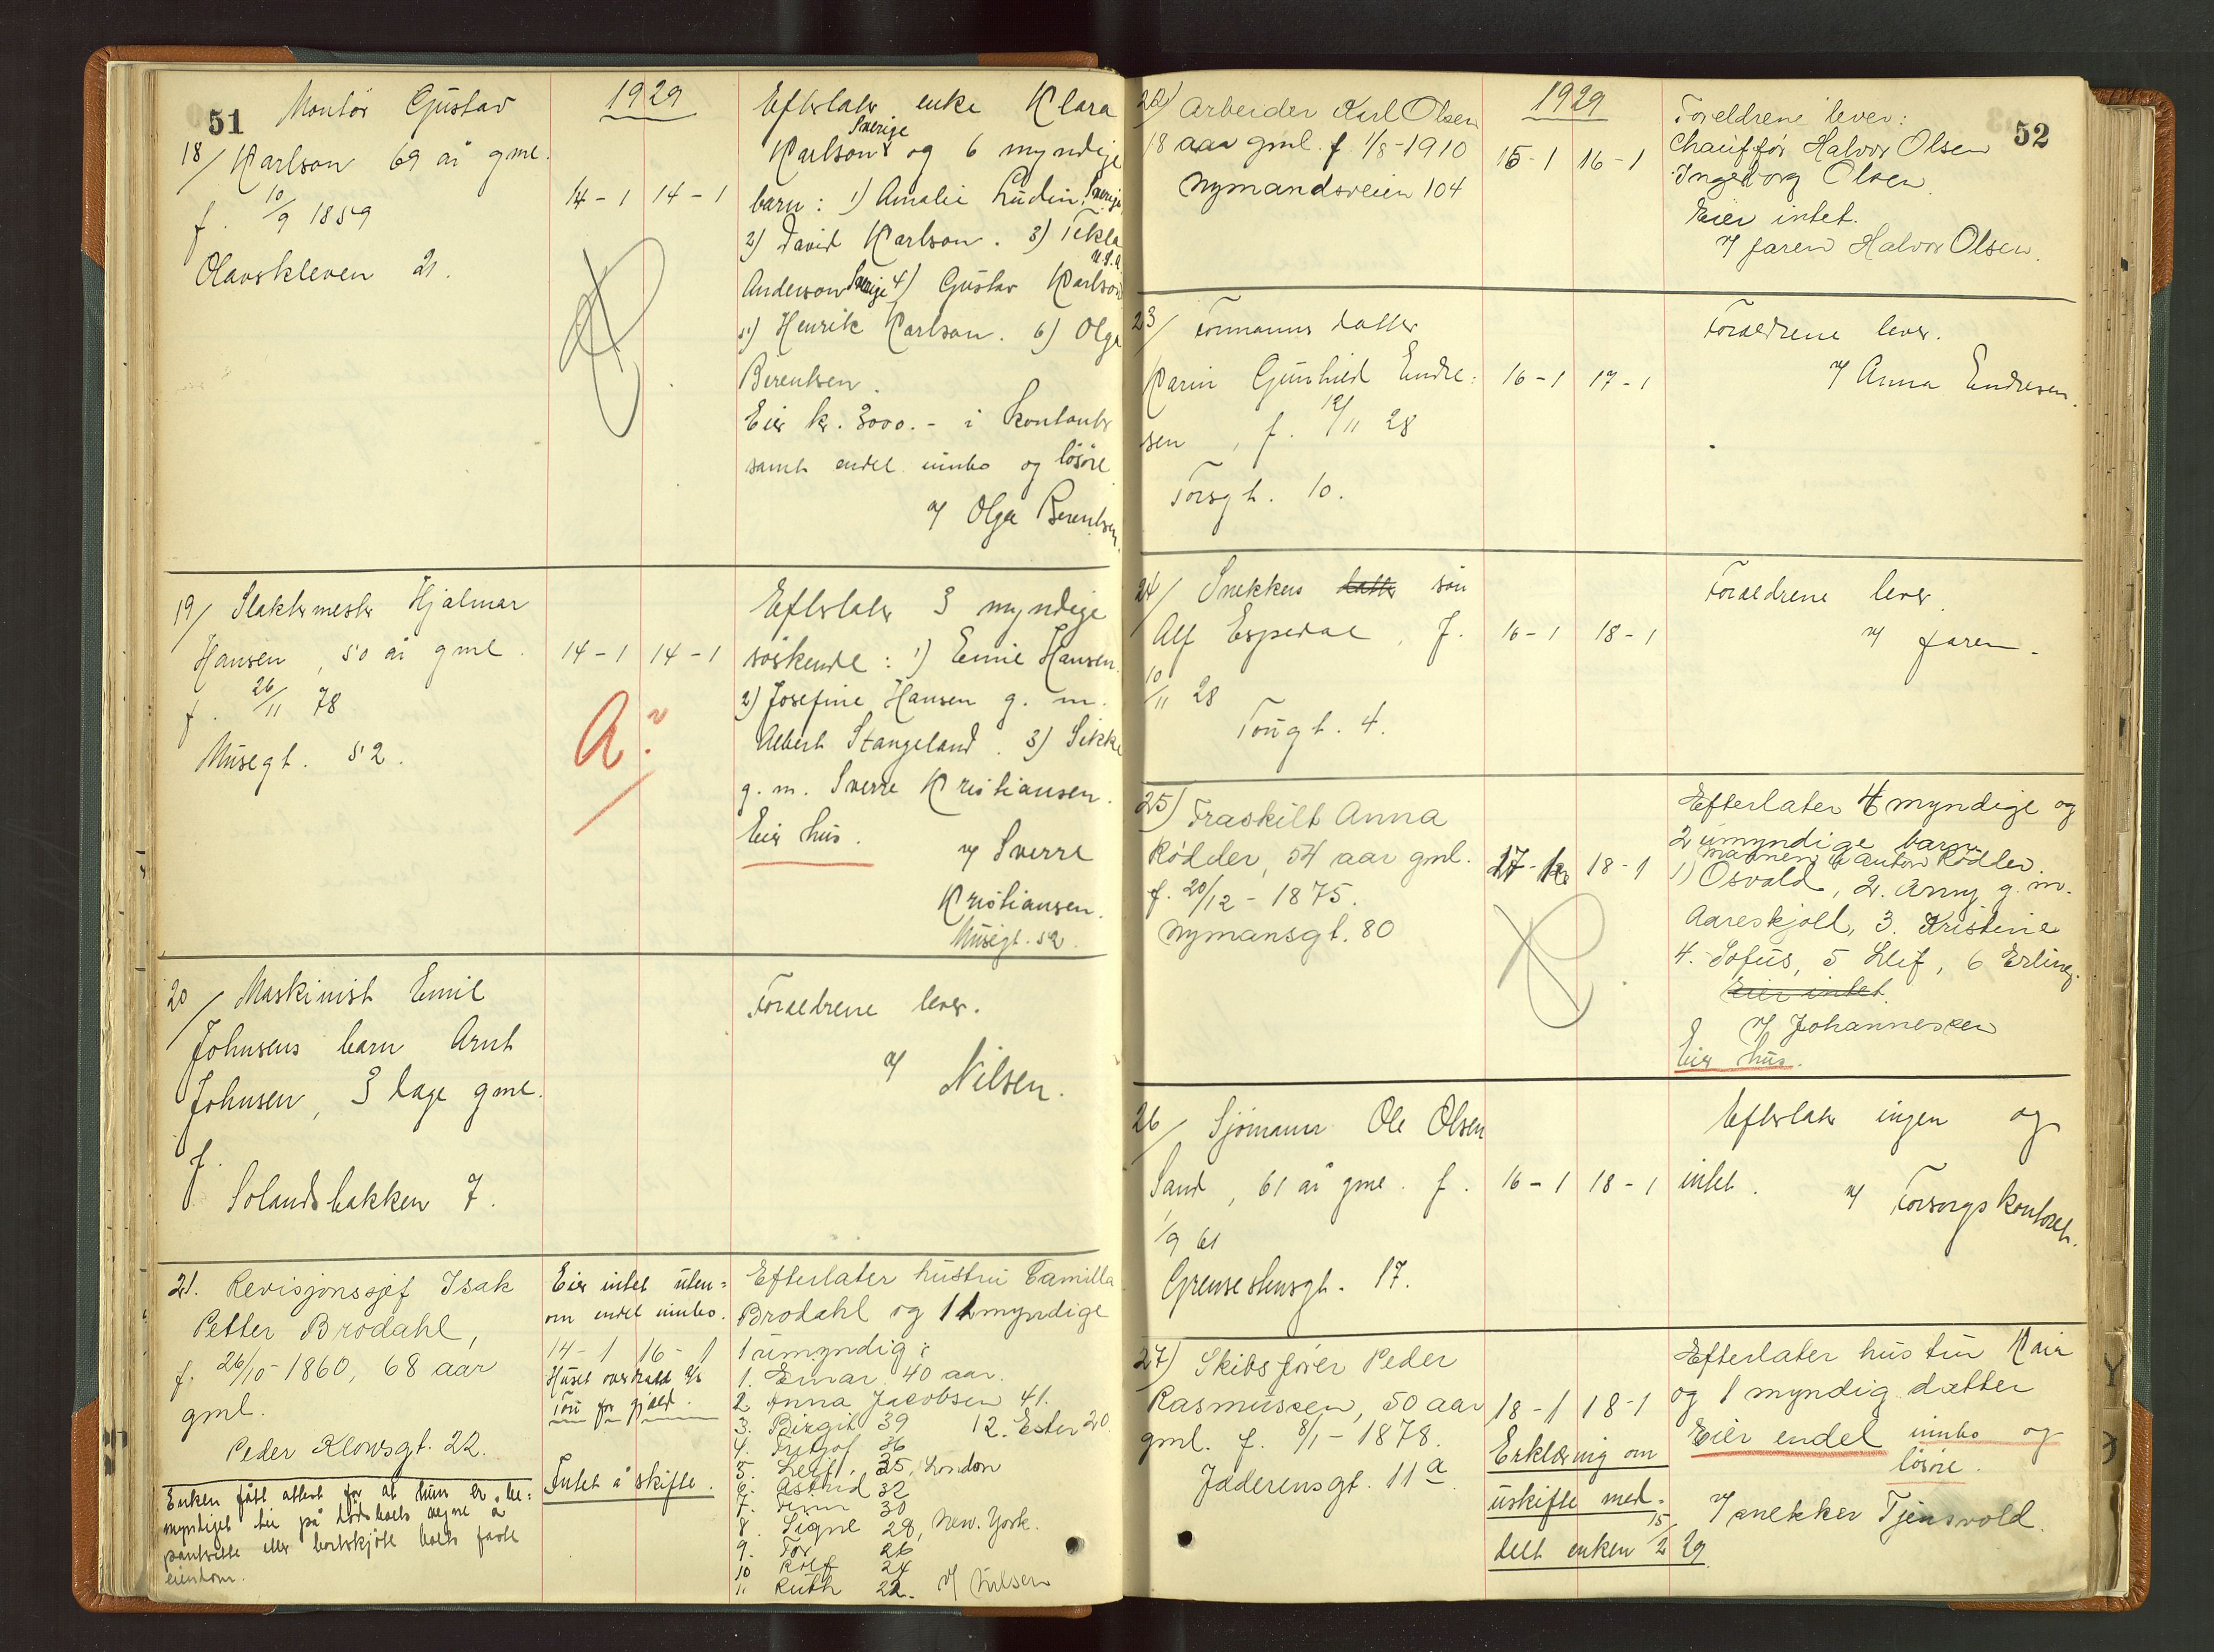 51
Montör Gustav
1929
18/ Karlson 69 år gml.
f. 10/9 1859
Olavskleven 21.
14-1 14-1
Efterlater enke Klara
Sverige
Karlson og 6 myndige
barn: 1) Amalie Ludin, Sverige
2) David Karlson. 3) Tekla
U.S.A.
Anderson Sverige 4) Gustav Karlson
5) Henrik Karlson. 6) Olga
Berentsen.
Eier kr. 3000.- i kontanter
samt endel innbo og lösöre
v/ Olga Berentsen.
19/ Slaktermester Hjalmar
Hansen, 50 år gml.
f. 26/11 78
Musegt. 52.
14-1 14-1
A?
Efterlater 3 myndige
söskende: 1) Emil Hansen.
2) Josefine Hansen g. m.
Albert Stangeland. 3) Sikke
g. m. Sverre Kristiansen.
Eier hus.
v/ Sverre
Kristiansen.
Musegt. 52.
20/ Maskinist Emil
Johnsens barn Arnt
Johnsen, 3 dage gml.
f.
Solandsbakken 7.
Foreldrene lever.
v/ Nilsen.
21. Revisjonssjef Isak
Petter Brodahl,
f. 26/10-1860, 68 aar
gml.
Peder Klowsgt. 22.
Enken fått attest for at hun er be=
myndiget til på dödsboets vegne å
pantsette eller bortskjöte boets faste
eiendom.
Eier intet uten=
om endel innbo.
14-1 16-1
Huset overdradd
for gjæld.
Intet å skifte.
Efterlater hustru Camilla
Brodahl og 11 myndige
1 umyndig:
1. Einar 40 aar.
2 Anna Jacobsen 41.
3. Birgit 39 12. Ester 20
4. 36
5. Leif, 35, London
6. Astrid 32
7. Finn 30
8. Signe 28, New. York.
9. Tor 26
10 Rolf 24
11 Ruth 22. v/ Nilsen
52
1929
22) Arbeider Karl Olsen
18 aar gml. f. 1/8-1910
Nymandsveien 104
15-1 16-1
Foreldrene lever:
Chauffør Halvor Olsen
Ingeborg Olsen.
Eier intet.
v/ faren Halvor Olsen.
23/ Formanns datter
Karin Gunhild Endre=
sen, f. 12/11 28
Torsgt. 10.
16-1 17-1
Foreldrene lever.
v/ Anna Endresen.
24/ Snekkers datter sön
Alf Espedal, f.
10/11 28
Tougt. 4.
16-1 18-1
Foreldrene lever.
v/ faren.
25) Fraskilt Anna
Rödder, 54 aar gml.
f. 20/12-1875.
Nymansgt. 80
18-1
Efterlater 4 myndige og
2 umyndige barn.
mannen Anton Rödler.
1) Osvald, 2. Anny g. m.
Aareskjold, 3. Kristine
4. Sofus, 5 Leif, 6 Erling.
Eier intet.
v/ Johannesen
Eier hus.
26/ Sjömann Ole Olsen
Sand, 61 år gml. f.
1/9 61
Grensestensgt. 17.
16-1 18-1
Efterlater ingen og
intet.
v/ Forsorgskontoret.
27) Skibsfører Peder
Rasmussen, 50 aar
gml. f. 8/1-1878.
Jæderensgt. 11a
18-1 18-1
Erklæring om
uskifte med=
delt enken 15/2 29
Efterlater hustru
og 1 myndig datter
Eier endel innbo og
lösöre.
v/ snekker Tjensvold.